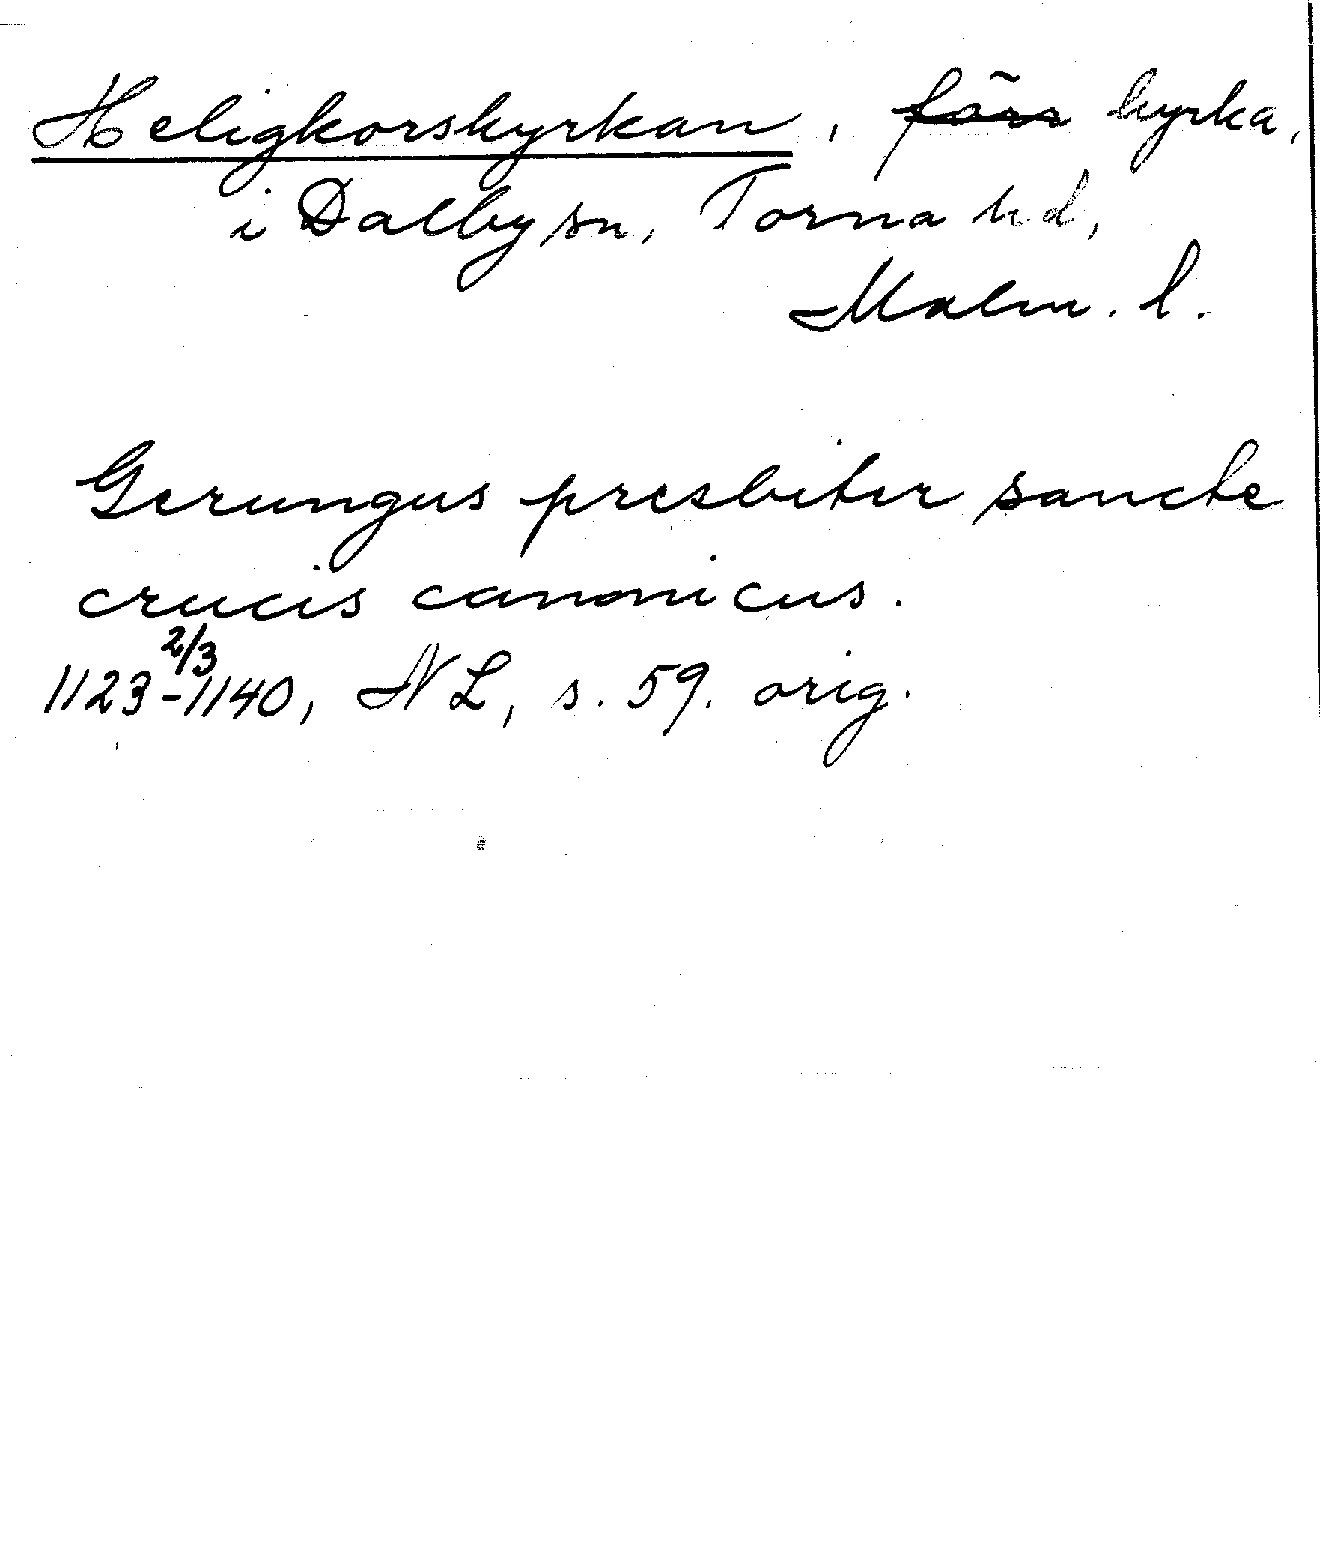 Heligkorskyrkan, förr kyrka,
i Dalby sn, Torna hd,
Malm. l.
Gerungus presbiter sancte
crucis canonicus.
2/3
1123-1140, NL, s. 59. orig.